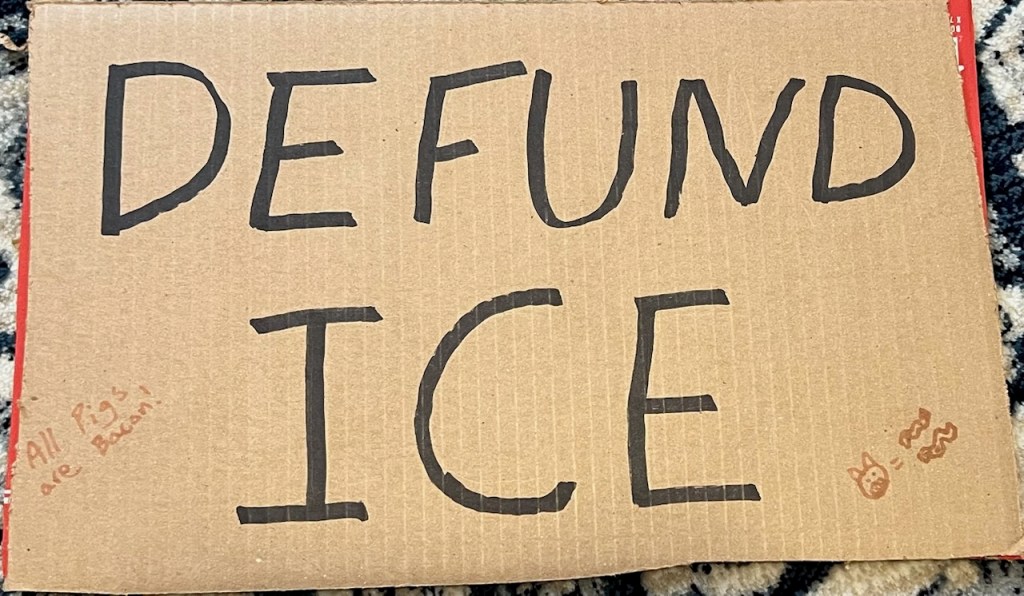 DEFUND
ICE
All Pigs
are Bacon!
=